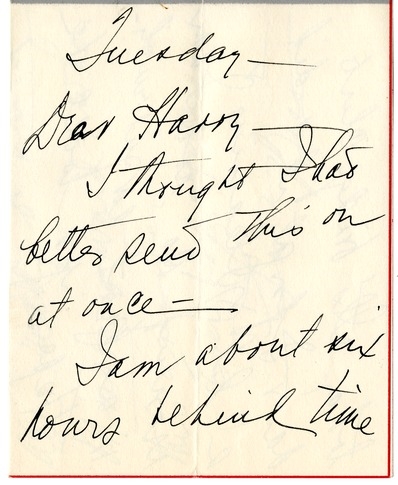 Tuesday—
Dear Harry—
I thought I had
better send this on
at once—
I am about six
hours behind time